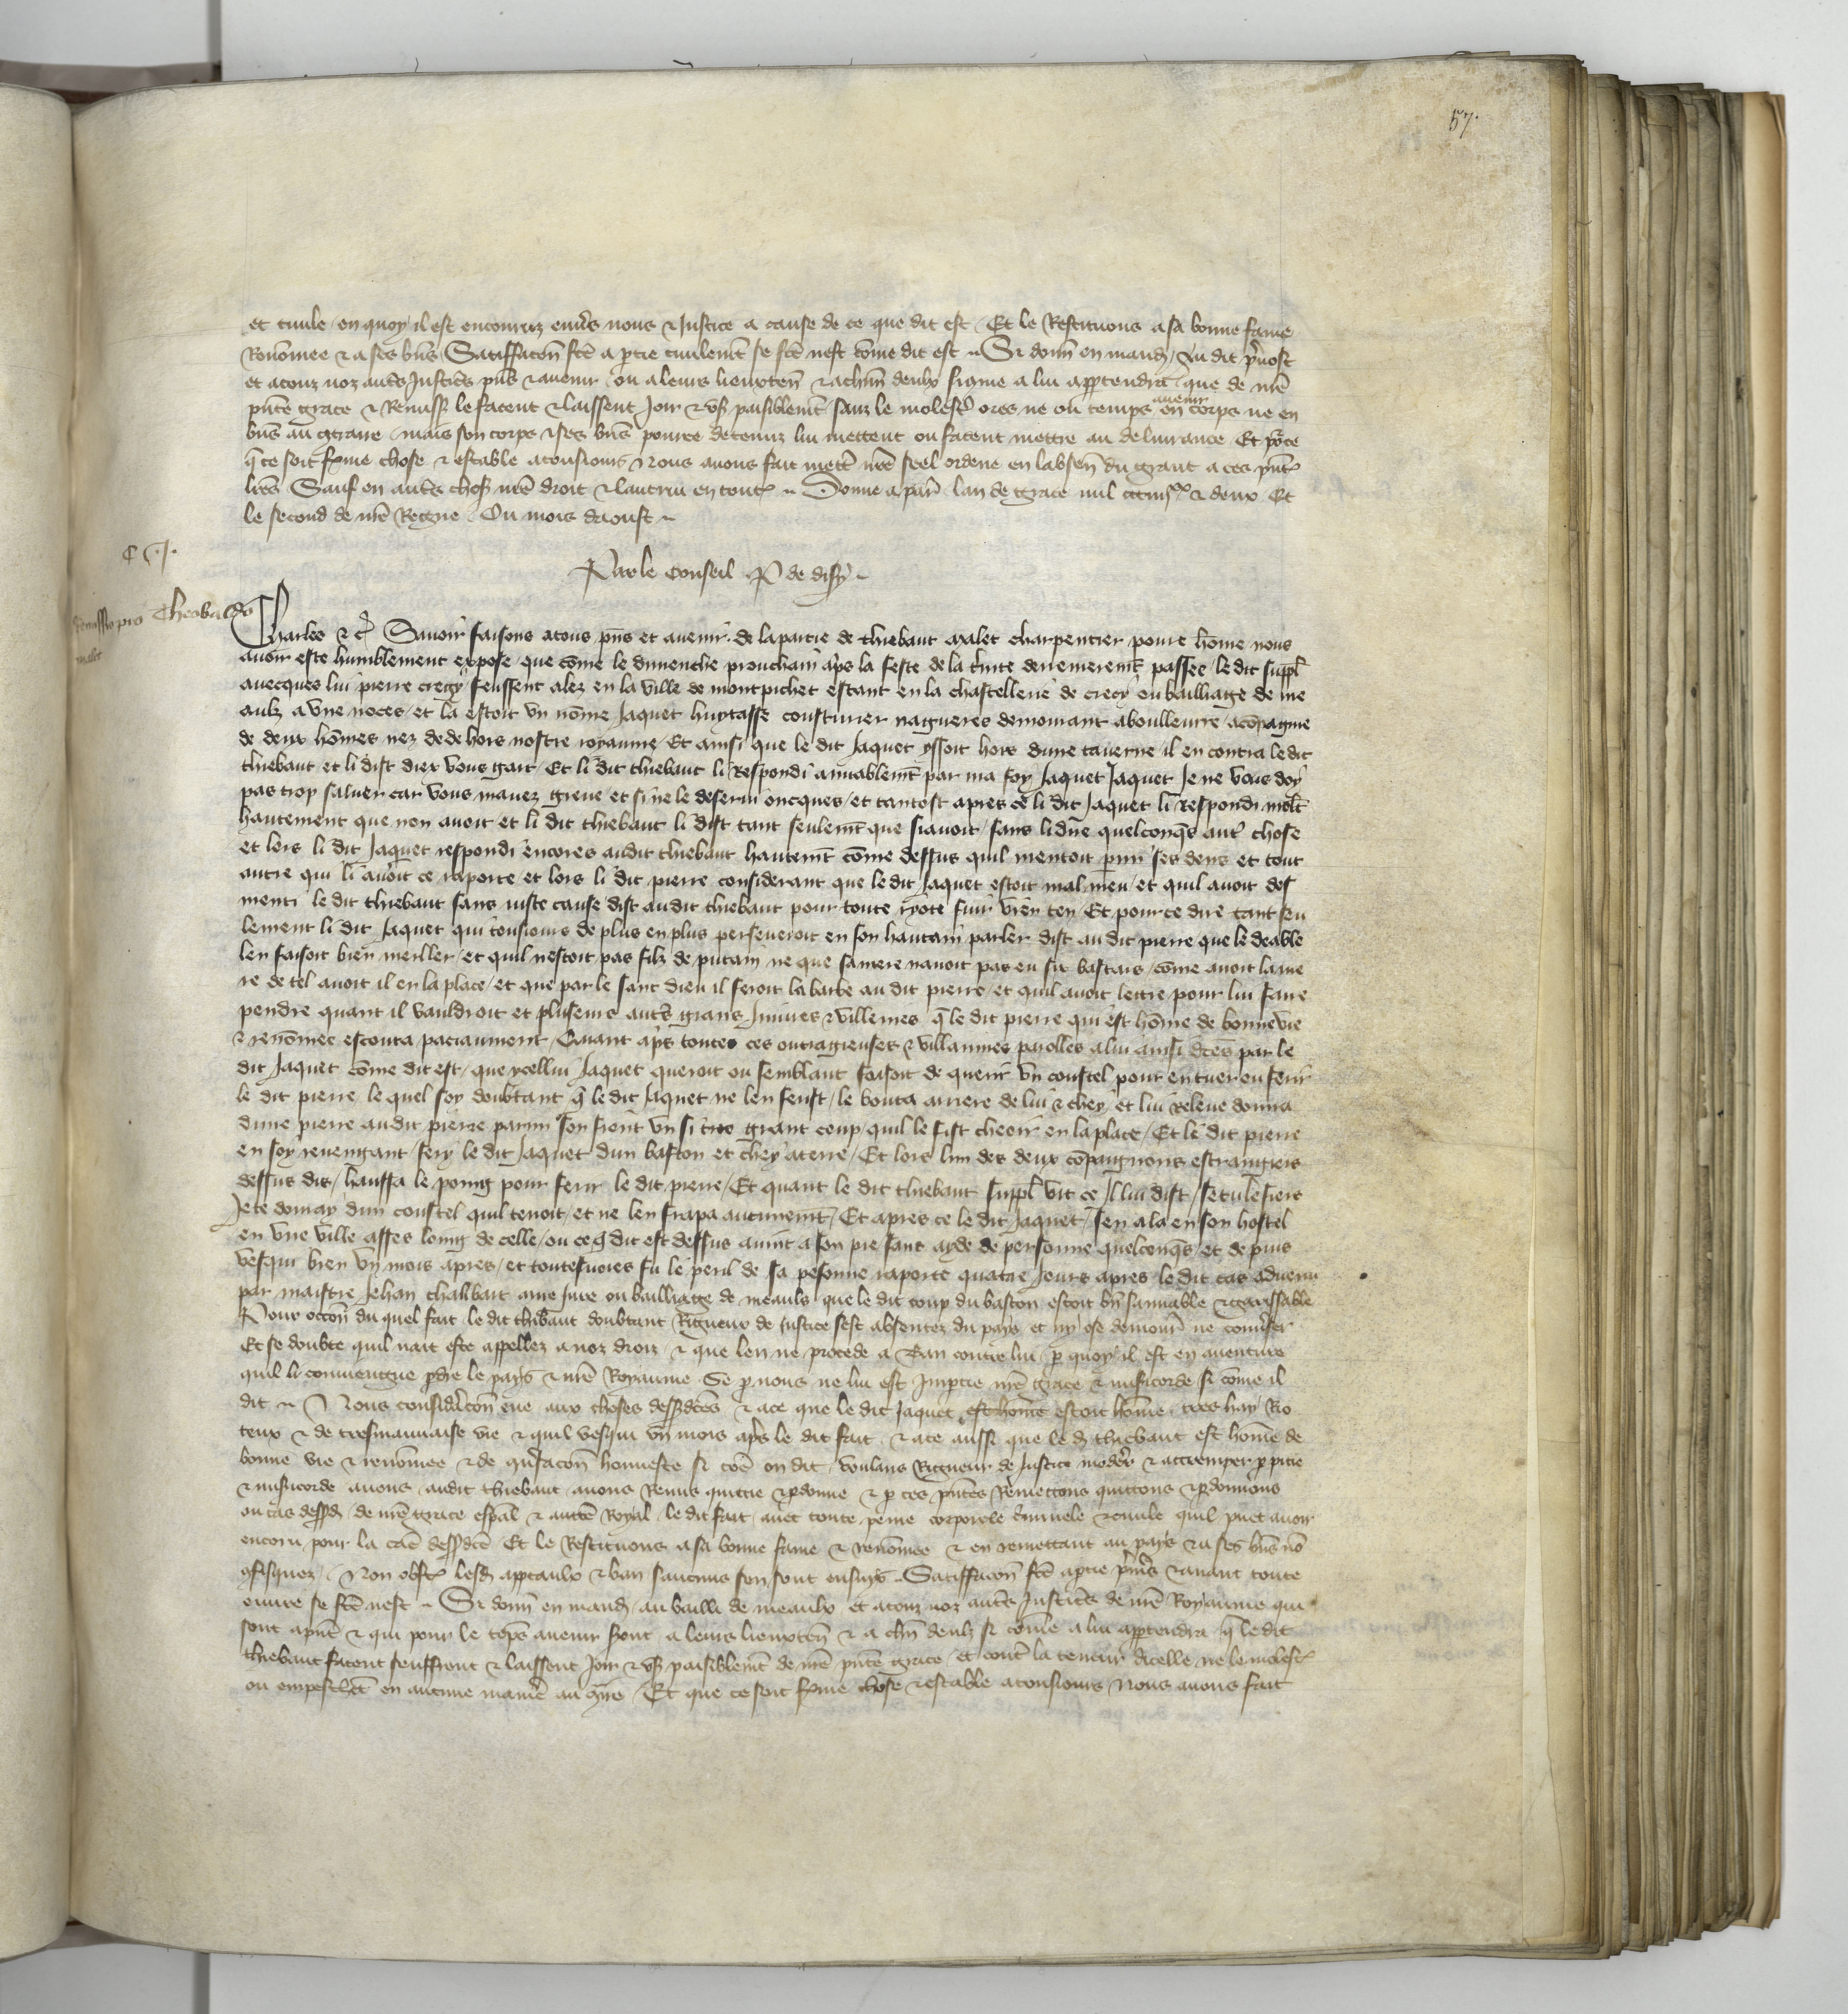 57.
et ciuile en quoy il est encouruz enuers nous & Justice a cause de ce que dit est. Et le Restituons a sa bonne fame
Renōmee & a ses bn̄s Satiffacōn fc̄e a ptie ciuilemt̄ se fc̄e nest cōme dit est. Si donn̄ en mand̄ Au dit p̄uost
et a touz noz aut̄s Justic̄s pn̄s & auenir ou a leurs lieuxten̄ & a chūn deulx si cōme a lui appartendra que de nr̄e
pn̄te grace & Remiss̄ le facent & laissent Joir & vs̄ paisiblemt̄ sanz le molest̄ ores ne ou temps auenir en corps ne en
bn̄s au ꝯtraire mais son corps & ses bn̄s pource detenuz lui mettent ou facent mettre au deliurance Et pōce
q̄ ce soit f̄me chose & estable a tousiours Nous auons fait mett̄ nr̄e seel ordene en labsen̄ du grant a ces pn̄t
lr̄es Sauf en aut̄s chos̄ nr̄e droit & lautrui en tout. Donne a paris lan de grace mil ccciiijxx & deux Et
le second de nr̄e Regne. Ou mois daoust
CCJ.
Par le conseil. P de disy
Remissio pro Theobaldo
malet
Charles &c̄ Sauoir faisons a tous pn̄s et auenir. de la partie de thiebaut malet charpentier poure hōme nous
auoir este humblement expose que cōme le dimenche prouchain ap̄s la feste de la t̄nite derrenieremt̄ passee le dit suppl̄
auecques lui pierre cregy feussent alez en la ville de montpichet estant en la chastellerie de crecy ou bailliage de me
aulx a vne noces et la estoit vn nōme Jaquet huytasse cousturier nagueres demourant a boulleurre acōpagnie
de deux hōmes nez de dehors nostre royaume Et ainsi que le dit Jaquet yssoit hors dune tauerne il encontra le dit
thiebaut et li dist diex vous gart Et li dit thiebaut li respondi amiablemt̄ par ma foy Jaquet Jaquet Je ne vous doy
pas trop saluer car vous mauez greue et si ne le deserui oncques et tantost apres ce li dit Jaquet li respondi mol̄t
hautement que non auoit et li dit thiebaut li dist tant seulemt̄ que si auoit sans li dir̄e quelconq̄s aut̄ chose
et lors li dit Jaquet respondi encores audit thiebaut hautemt̄ cōme dessus quil mentoit parmi ses dens et tout
autre qui li auoit ce raporte et lors li dit pierre considerant que le dit Jaquet estoit mal meu et quil auoit des
menti le dit thiebaut sans iuste cause dist audit thiebaut pour toute ryote fuir vien ten Et pour ce dire tant seu
lement li dit Jaquet qui tousiours de plus en plus perseueroit en son hautain parler dist au dit pierre que le deable
len faisoit bien meller et quil nestoit pas filz de putain ne que sa mere nauoit pas eu six bastars cōme auoit la me
re de tel auoit il en la place et que par le sanc dieu il feroit la barbe au dit pierre et quil auoit lettre pour lui faire
pendre quant il vauldroit et pluseurs aut̄s grans Jniures & villenies q̄ le dit pierre qui est hōme de bonne vie
& renōmee escouta paciaument Quant ap̄s toutes ces oultragieuses & villaines parolles a lui ainsi dictes par le
dit Jaquet cōme dit est que ycellui Jaquet queroit ou semblant faisoit de querir vn coustel pour en tuer ou ferir
le dit pierre le quel soy doubtant q̄ le dit Jaquet ne len ferist le bouta arriere de lui & chey et lui releue donna
dune pierre au dit pierre parmi son front vn si tres grant coup quil le fist cheoir en la place Et le dit pierre
en soy reuengant fery le dit Jaquet dun baston et chey a terre Et lors lun des deux cōpaignons estrangiers
dessus dis haussa le poing pour ferir le dit pierre Et quant le dit thiebaut suppl̄ vit ce Jl lui dist se tu le fiers
Je te donray dun coustel quil tenoit et ne len frapa aucunemt̄ Et apres ce le dit Jaquet sen ala en son hostel
en vne ville asses loing de celle ou ce q̄ dit est dessus auint a son pie sans ayde de personne quelconq̄s et depuis
vesqui bien vn mois apres et toutesuoies fu le peril de sa personne raporte quatre Jours apres le dit cas aduenu
par maistre Jehan chalibart mire Jure ou bailliage de meaulx que le dit coup du baston estoit bn̄ sannable & garissable
Pour occōn du quel fait le dit thibaut doubtant Rigueur de Justice sest absentez du pays et ny ose demourer ne conuerser
Et se doubte quil nait este appellez a noz droiz & que len ne procede a Ban contre lui p quoy il est en auenture
quil li conuengne p̄dre le pays & nr̄e Royaume Se p nous ne lui est Jmp̄tie nr̄e grace & mis̄icorde si cōme il
dit. Nous considerac̄on eue aux choses dess̄dc̄es & a ce que le dit Jaquet est hōme estoit hōme tres hay Rio
teux & de tresmauuaise vie & quil vesqui vn mois ap̄s le dit fait & a ce aussi que le d̄ thiebaut est home de
bonne vie & renōmee & de ꝯuersacōn honneste si cōe on dit voulans Rigueur de Justice moder̄ & attremper p pitie
& mis̄icorde auons audit thiebaut auons Remis quittie & p̄donne & p ces pn̄tes Remettons quittons & p̄donnons
ou cas dess̄d̄ de nr̄e grace esp̄al & auct̄e Royal le dit fait auec toute peine corporele c̄minele & ciuile quil puet auoir
encoru pour la cāe dess̄dc̄e Et le Restituons a sa bonne fame & renōmee & en remettant au pays & a ses bn̄s nō
ꝯfisquez Non obst̄ lesd̄ appeaulx & ban saucuns sen sont ensuys. Satiffacōn fc̄e a ptie p̄mier̄ & auant toute
euure se fc̄e nest. Si donn̄ en mand̄ au bailli de meaulx et a touz noz aut̄s Justic̄s de nr̄e Royaume qui
sont a pn̄t & qui pour le tēps auenir seront a leurs lieuxten̄ & a chūn deulx si cōme a lui appartendra q̄ le dit
thiebaut facent seuffrent & laissent Joir & vs̄ paisiblemt̄ de nr̄e pn̄te grace et cont̄ la teneur dicelle ne le molest̄
ou empeschēt en aucune manier̄ au ꝯtraire Et que ce soit f̄me chose & estable a tousiours Nous auons fait